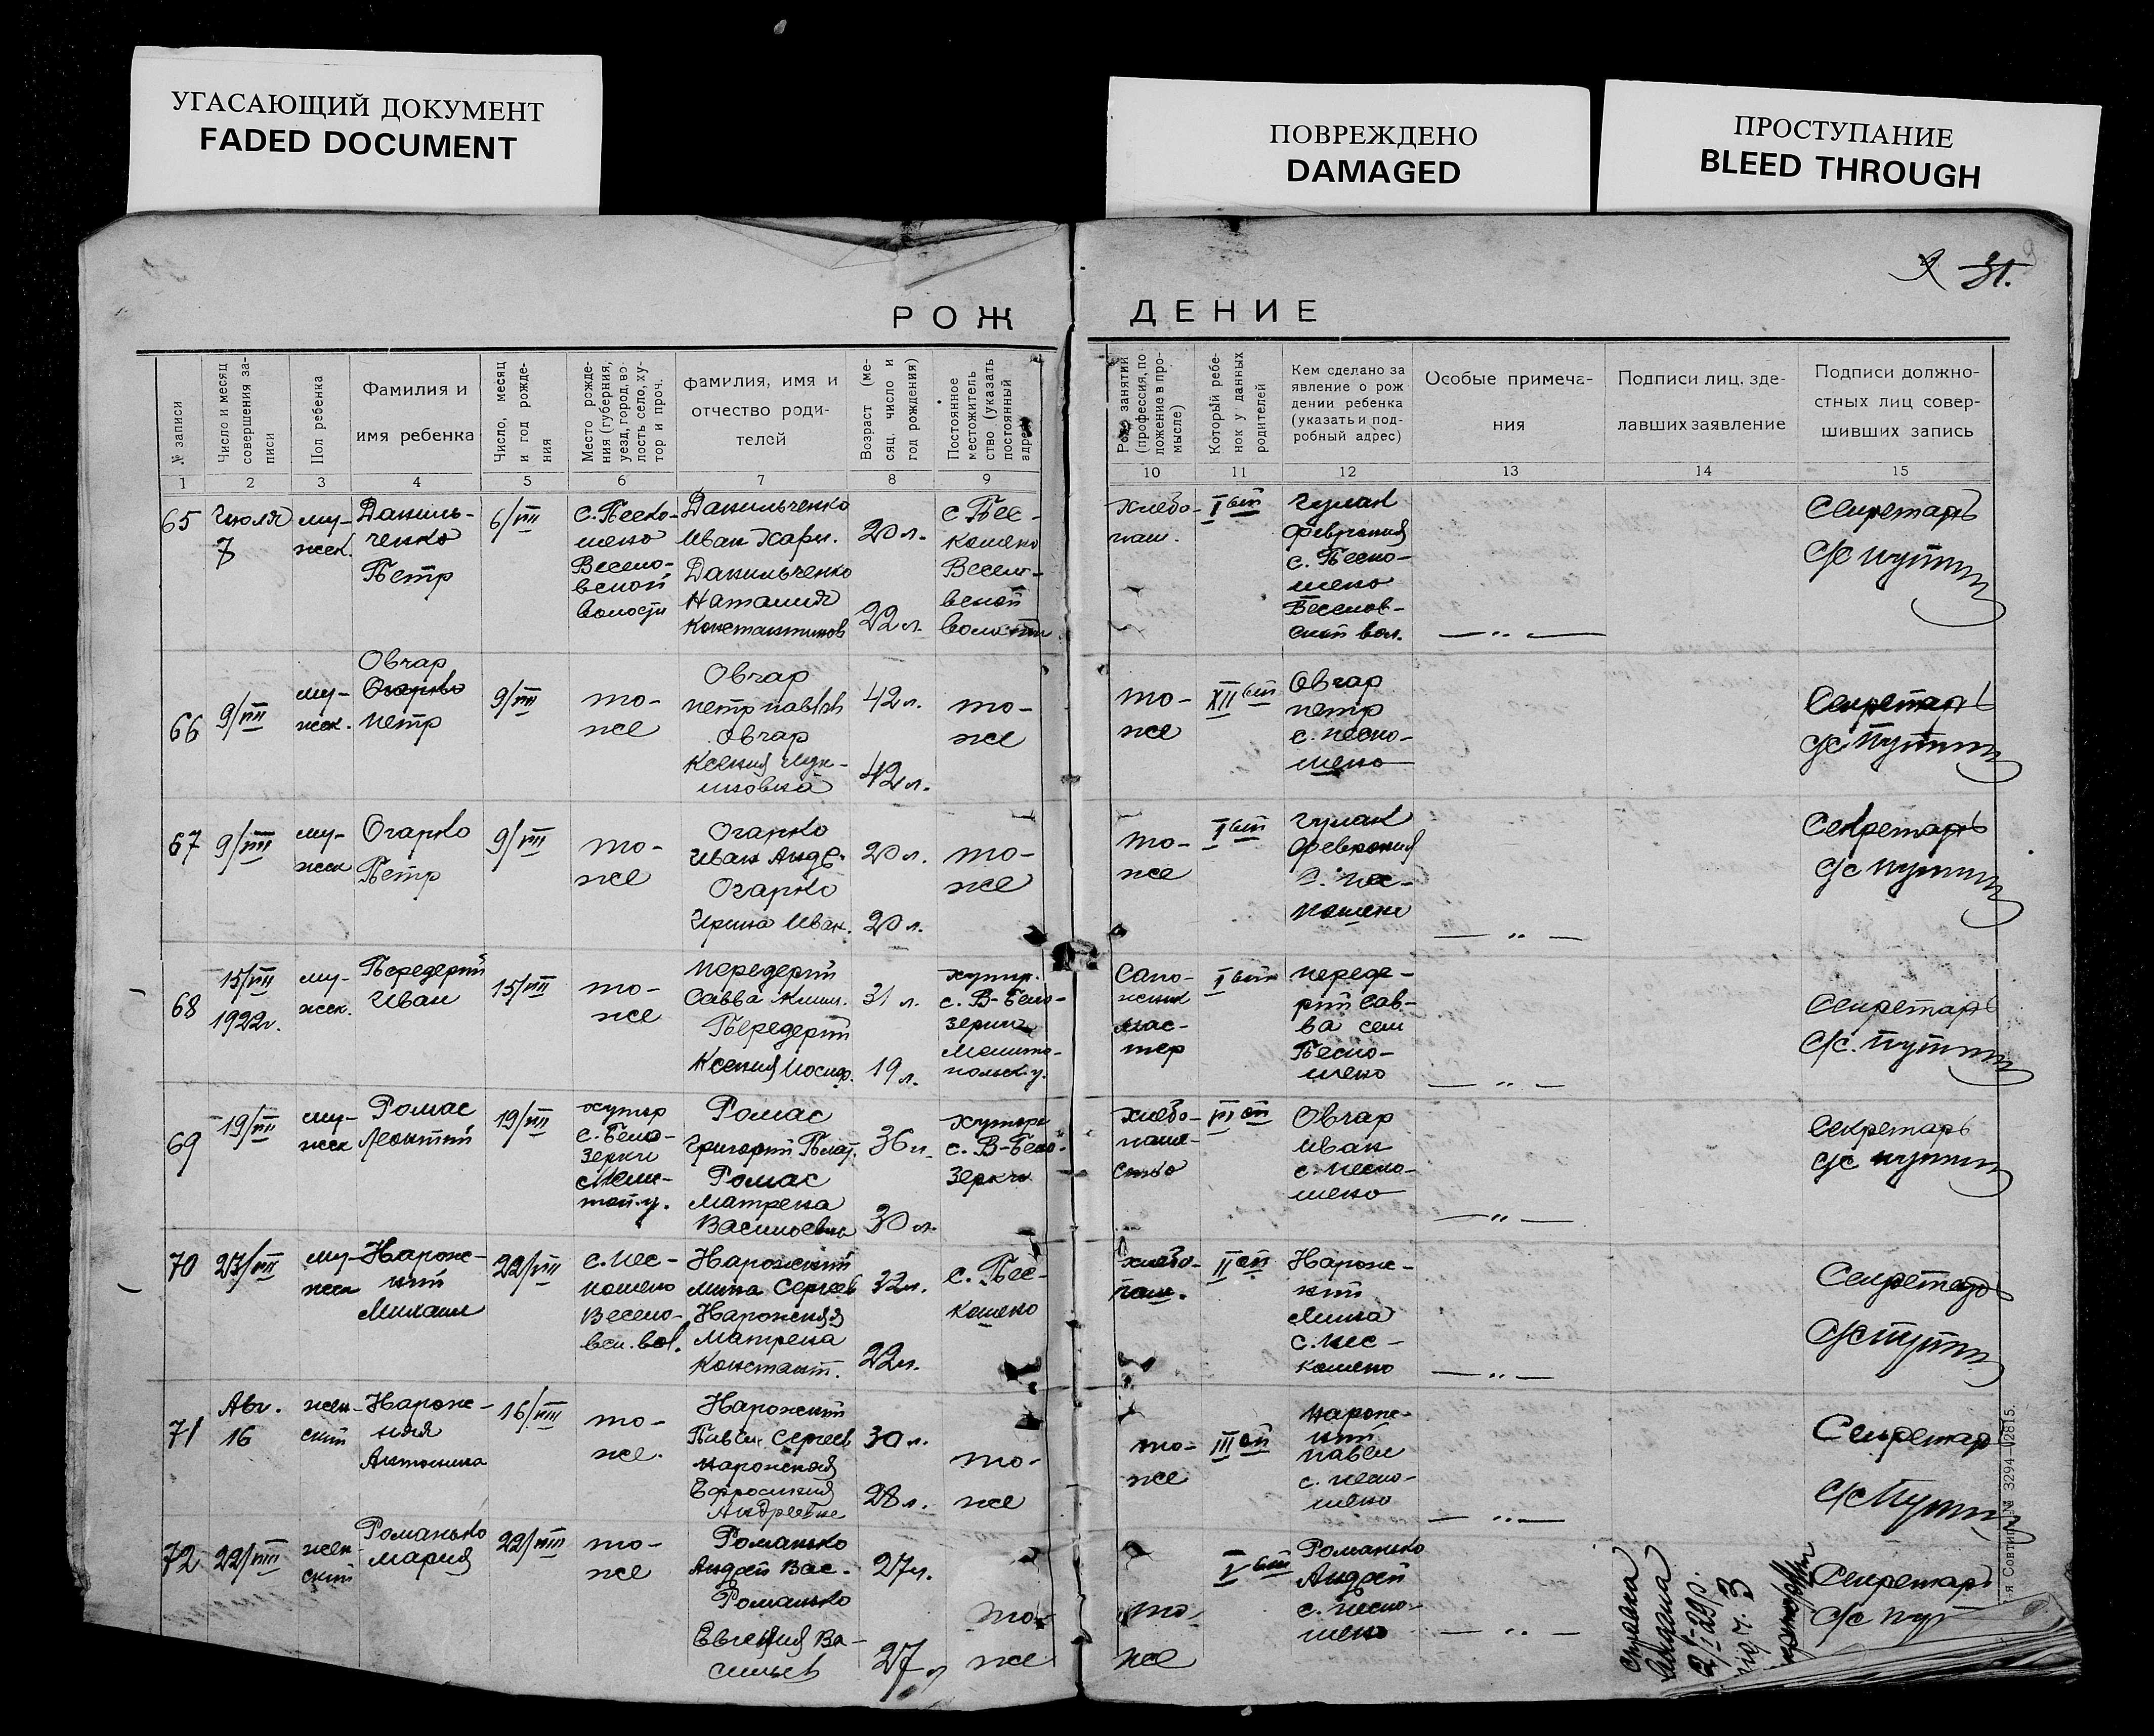 УГАСАЮЩИЙ ДОКУМЕНТ
FADED DOCUMENT
ПОВРЕЖДЕНО
DAMAGED
ПРОСТУПАНИЕ
BLEED THROUGH
31.
РОЖДЕНИЕ
№ записи
Число и месяц
совершения за-
писи
Пол ребенка
Фамилия и
имя ребенка
Число, месяц
и год рожде-
ния
Место рожде-
ния (губерния,
уезд, город, во-
лость село, ху-
тор и проч.
фамилия, имя и
отчество роди-
телей
Возраст (ме-
сяц, число и
год рождения)
Постоянное
местожитель
ство (указать
постоянный
адрес
Род занятий
(профессия, по
ложение в про-
мысле)
Который ребе-
нок у данных
родителей
Кем сделано за
явление о рож
дении ребенка
(указать и под-
робный адрес)
Особые примеча-
ния
Подписи лиц, зде-
лавших заявление
Подписи должно-
стных лиц совер-
шивших запись
1 2 3 4 5 6 7 8 9 10 11 12 13 14 15
65
Июля
7
му-
жск.
Даниль-
ченко
Петр
6/VII
с. Песко-
шено
Весело-
вской
волости
Данильченко
Иван Харл.
20 л.
Данильченко
Наталия
Константинов
22 л.
с. Пес-
кошено
Весело-
вской
волости
хлебо-
паш.
I ый
Чулак
Феврония
с. Песко-
шено
Веселов-
ский вол.
— „ —
Секретарь
с/с
66
9/VII
му-
жск.
Овчар
Огарко
Петр
9/VII
то-
же
Овчар
Петр Павл
42 л.
Овчар
Ксения
42 л.
то-
же
то-
же
XII ый
Овчар
Петр
с. Песко-
шено
Секретарь
с/с
67
9/VII
му-
жск
Огарко
Петр
9/VII
то-
же
Огарко
Иван Андр.
20 л.
Огарко
Ирина Иван.
20 л.
то-
же
то-
же
I ый
Чулак
Феврония
с. Пес-
кошено
— „ —
Секретарь
с/с
68
15/VII
1922 г.
му-
жск.
Передерий
Иван
15/VII
то-
же
Передерий
Савва Клим.
31 л.
Передерий
Ксения Иосиф.
19 л.
хутор.
с. В-Бело-
зерки
Мелито-
польск. у.
Сапо-
жный
мас-
тер
I ый
Переде-
рий Сав-
ва сел
Песко-
шено
— „ —
Секретарь
с/с.
69
19/VII
му-
жск
Ромас
Леонтий
19/VII
хутор
с. Бело-
зерки
Мели-
топ. у.
Ромас
Григорий
36 л.
Ромас
Матрена
Васильевна
30 л.
хутора
с. В-Бело-
зерки
хлебо-
паше-
ство
III ий
Овчар
Иван
с. Песко-
шено
— „ —
Секретарь
с/с
70
23/VII
му-
жск
Нарож-
ний
Михаил
22/VII
с. Пес-
кошено
Весело-
вск. вол.
Нарожний
Мина Сергеев
32 л.
Нарожная
Матрена
Констант.
22 л.
с. Пес-
кошено
хлебо-
паш.
II ой
Нарож-
ний
Мина
с. Пес-
кошено
— „ —
Секретарь
с/с
71
Авг.
16
жен-
ский
Нарож-
няя
Антонина
16/VIII
то-
же.
Нарожний
Павел Сергеев
30 л.
Нарожная
Ефросиния
Андреевна
28 л.
то-
же
то-
же
III ий
Нарож-
ний
Павел
с. Песко-
шено
— „ —
Секретар
с/с
72
22/VIII
жен-
ский
Романько
Мария
22/VIII
то-
же
Романько
Андрей Вас.
27 л.
Романько
Евгения Ва-
сильев
27 л
то-
же
то-
же
V ый
Романько
Андрей
с. Песко-
шено
— „ —
Секретарь
с/с
3294 12815.